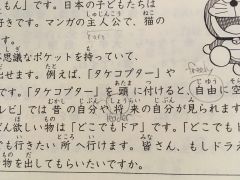 もん」です。日本の子どもたちは
好きです。マンガの主人公で、猫の
す。
思議なポケットを持っていて、
出せます。例えば、「タケコプター」や
です。「タケコプター」を頭に付けると、自由に空
レビ」では昔の自分や将来の自分が見られます
ん欲しい物は「どこでもドア」です。「どこでもド
でも行きたい所へ行けます。皆さん、もしドラえ
物を出してもらいたいですか。